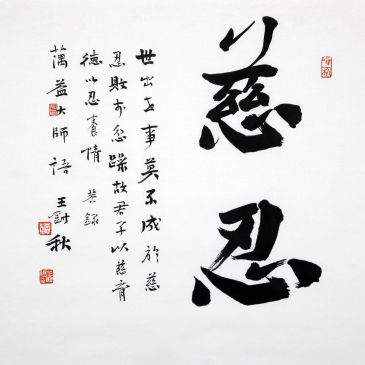 慈忍
世出世事莫不成於慈
忍敗於忿躁故君子以慈育
德以忍養情 恭錄
蕅益大師語 王 秋